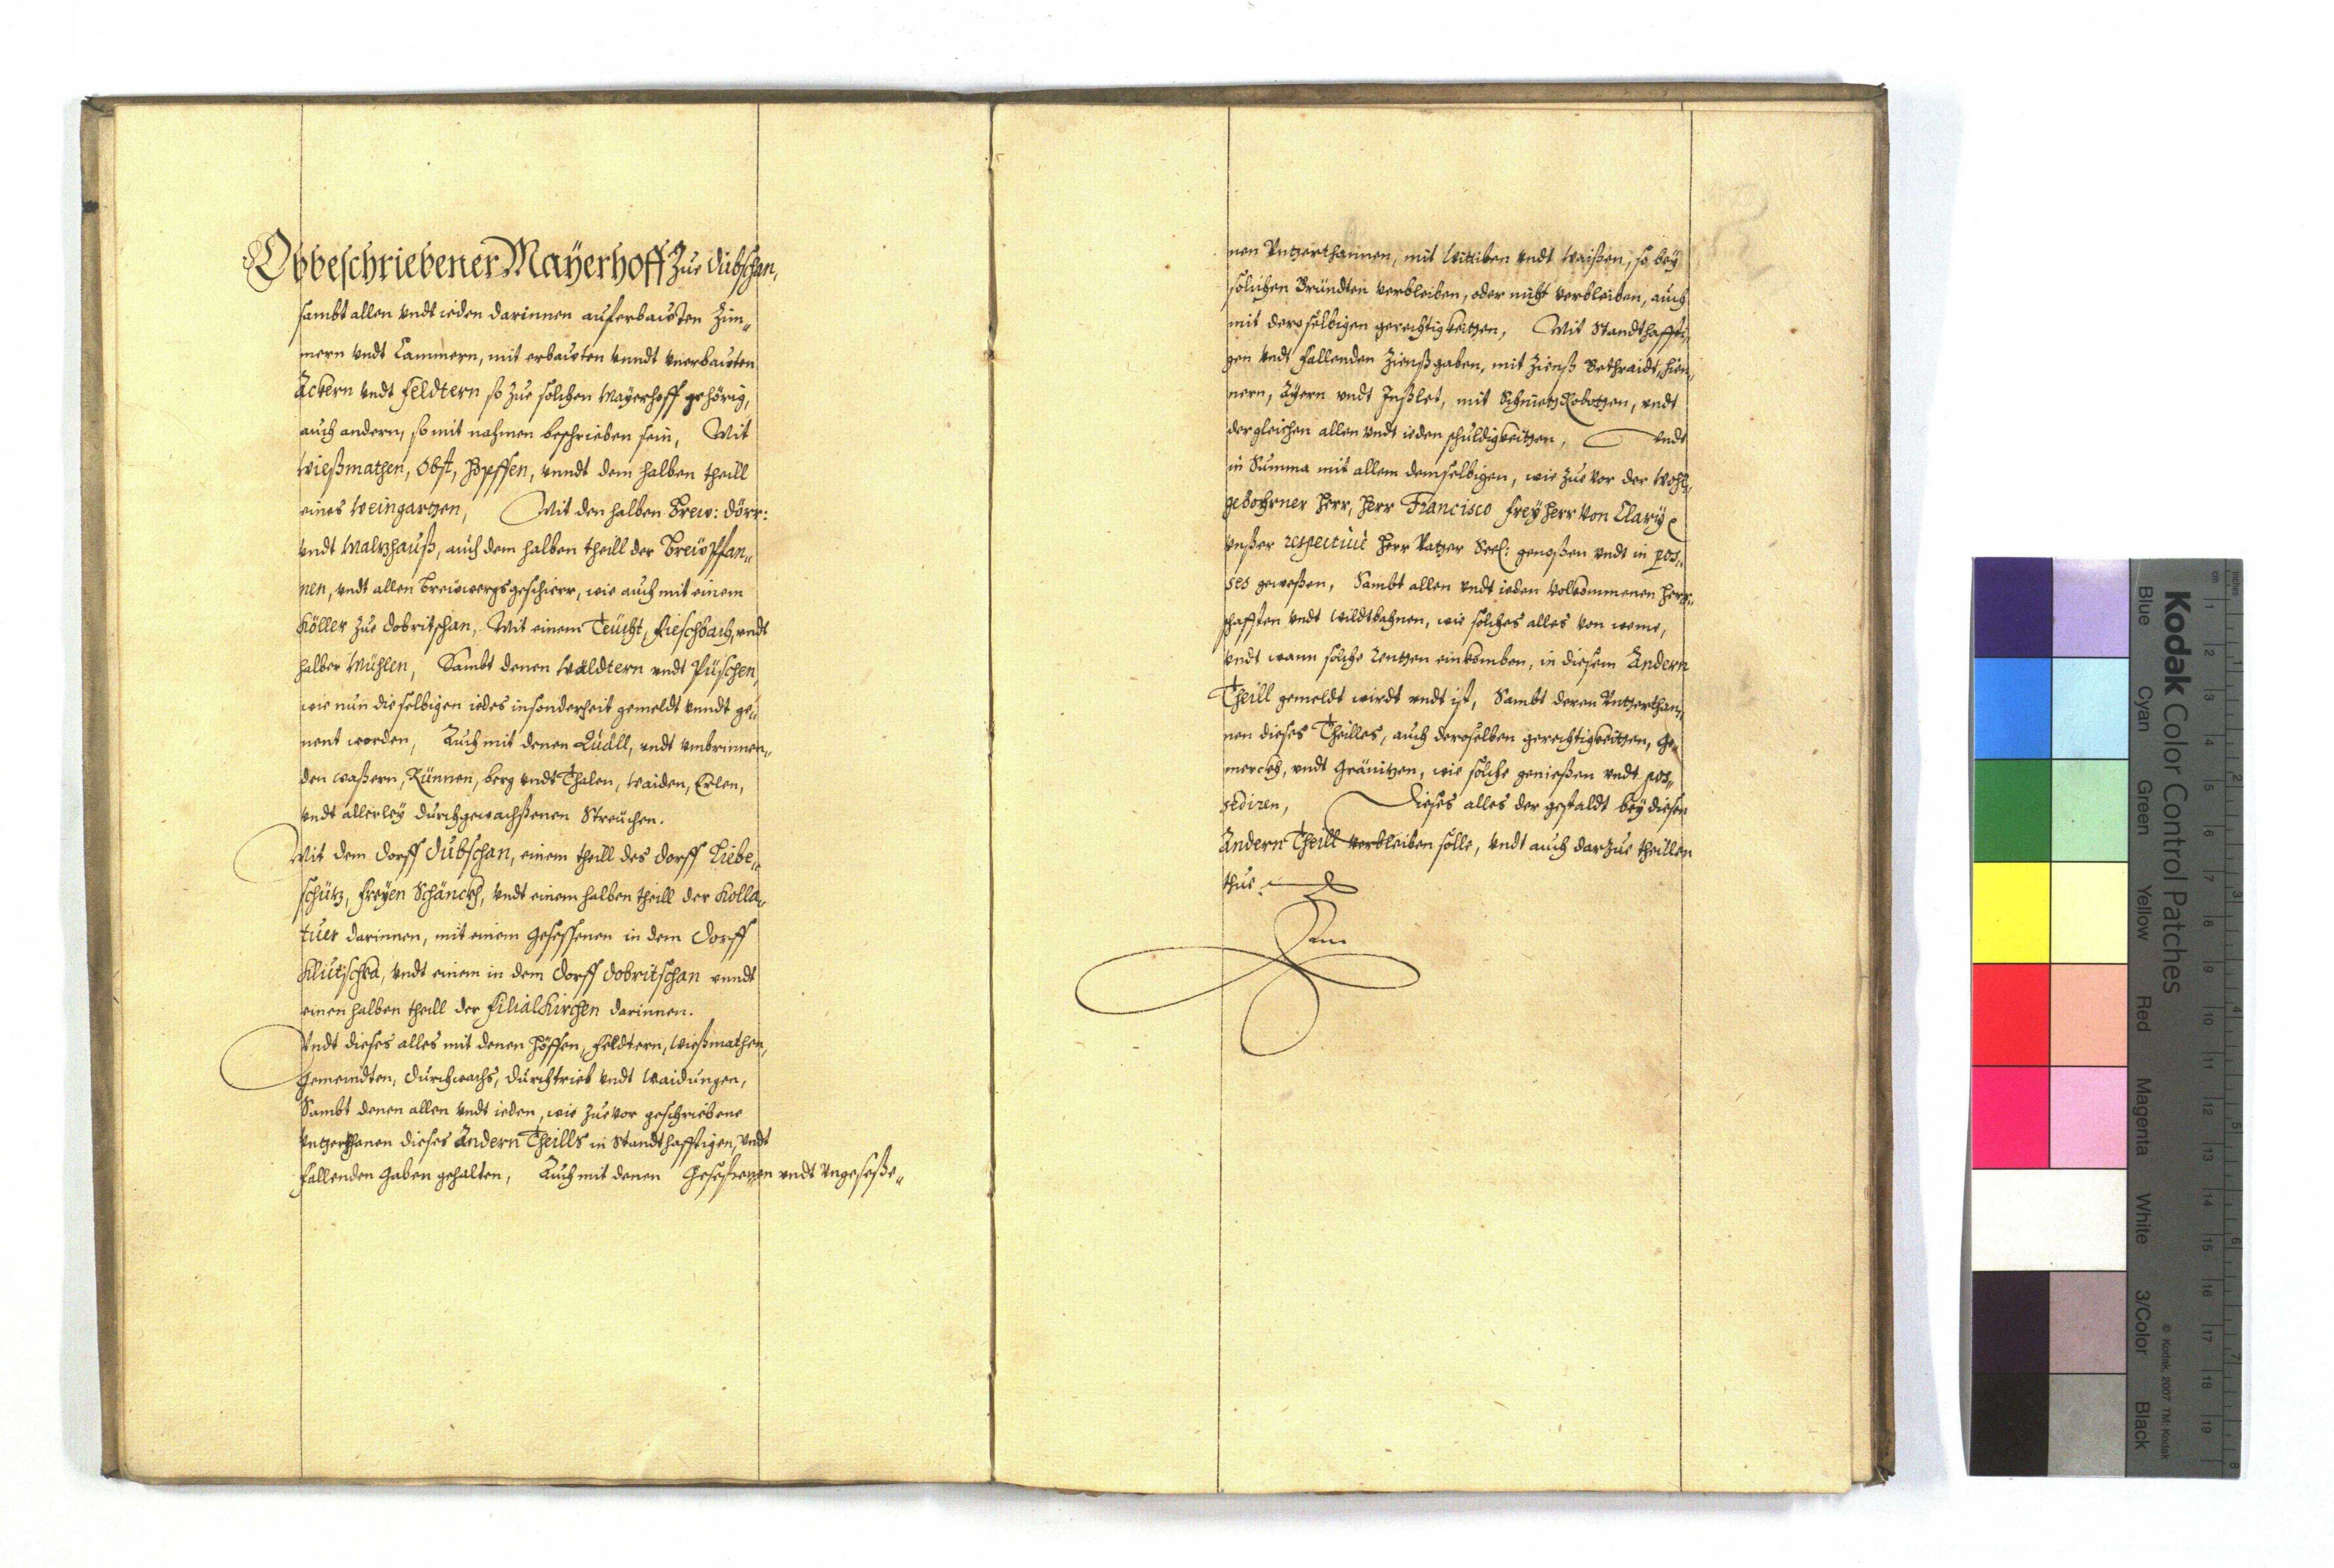 Obbeschriebener Mayerhoff Zue Dubschan,
sambt allen vndt ieden darinnen auferbauten Zim„
mern vndt Cammern, mit erbauten vnndt vnerbauten
Äckern vndt feldtern so zue solchen Mayerhoff gehörig,
auch andern, so mit nahmen beschrieben sein, Mit
Wießmathen, Obst, Hopffen, vnndt dem halben theill
eines Weingartzen, Mit den halben Brew: dörr:
vndt Maltzhauß, auch dem halben theill der Brew Pfan„
nen, vndt allen Brewwergsgeschierr, wie auch mit einem
Köller zue Dobritschan, Mit einem Teücht, Fieschbach, vndt
halber Mühlen, Sambt denen Wäldtern vndt Püschen,
wie nun dieselbigen iedes insonderheit gemeldt vnndt ge„
nent worden, Auch mit denen Quäll, vndt vmbrinnen„
den wassern, Rünnen, berg vndt Thalen, Waiden, Erlen,
vndt allerley durchgewachßenen Streüchen.
Mit dem dorff Dubschan, einem theill des dorff Liebe„
schütz, freyen Schänckh, vndt einem halben theill der Kolla„
tuer darinnen, mit einem Gesessenen in dem dorff
Klutschka, vndt einem in dem dorff Dobritschan vnndt
einen halben theill der Filial Kirchen darinnen.
Vndt dieses alles mit denen Höffen, feldtern, Wießmathen,
Gemeindten, durchwachs, durchtrieb vndt Waidungen,
Sambt denen allen vndt ieden, wie zuevor geschriebene
Vntzerthanen dieses Andern Theills in Standthafftigen, vndt
fallenden Gaben gehalten, Auch mit denen Gesessenen vndt Vngeseße„
nen Vntzerthannen, mit Wittiben vndt Waißen, so bey
solchen Gründten verbleiben, oder nicht verbleiben, auch
mit deroselbigen gerechtigkeitzen, Mit Standthaffti„
gen vndt fallenden Zienßgaben, mit Zienß Gethraidt, Hien„
nern, Ayern vndt Inßlet, mit Schnietz Robotzen, vndt
dergleichen allen vndt ieden schuldigkeitzen, Vndt
in Summa mit allem demselbigen, wie zuevor der Wohl„
gebohrner Herr, Herr Francisco Frey Herr Von Clary
vnßer respectiuè Herr Vatzer Seel: genoßen vndt in pos„
ses geweßen, Sambt allen vndt ieden volkommenen Herr„
schafften vndt Wildtbahnen, wie solches alles von weme,
vndt wann solche Rentzen einkomben, in diesem Andern
Theill gemeldt wirdt vndt ist, Sambt deren Vntzerthan„
nen dieses Theilles, auch deroselben gerechtigkeitzen, Ge„
merckh, vndt Gränitzen, wie solche genießen vndt pos„
sediren, Dieses alles der gestaldt bey diesen
Andern Theill verbleiben solle, vndt auch darzue theillen
thue.